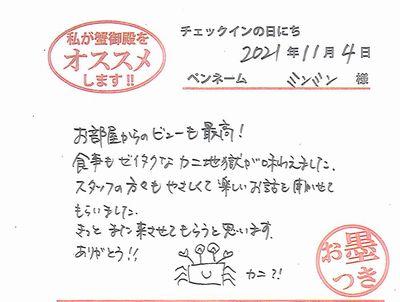 私が蟹御殿を
オススメ
します!!
チェックインの日にち
2021年11月4日
ペンネーム ミンミン 様
お部屋からのビューも最高!
食事もゼイタクなカニ地獄が味わえました。
スタッフの方々もやさしくて楽しいお話を聞かせて
もらいました。
きっとまた来させてもらうと思います。
ありがとう!!
カニ?!
お墨
つき